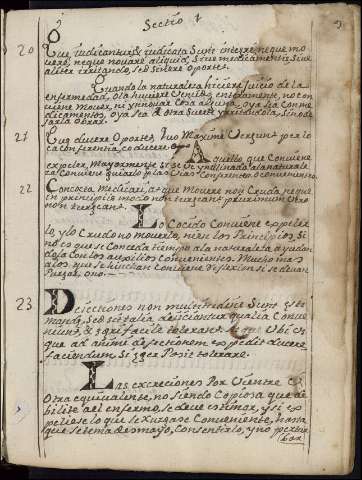 2 Sectio 1
20 Que iudicantur & iudicata sunt integre neque mo
uere, neque nouare aliquid, siue medicamentis siue
aliter irritando sed sinere oportet.
Quando la naturaleza hiciere juicio de la
enfermedad, o la huuiere enteramente, no con
uiene mouer, ni ynnouar cosa alguna, o ya sea con me
dicamentos, o ya sea de otra suerte yrritandola, sino de
jarla obrar.
21 Que ducere oportet, quo maxime vergunt per lo
ca conferentia, eo ducere.
Aquello que conuiene
expeler, mayormente si se ve ynclinado a la natural
za conuiene guiarlo por las vias conferentes o conuenientes.
22 Concocta medicari, atque mouere non cruda, neque
in principijs modo non turgeant, plurimum vero
non turgeant.
Lo cocido conuiene expeler
lo, y lo crudo no mouerlo, ni en los principios, si
no es que se conceda tiempo a la naturaleza ayudan
dola con los auxilios conuenientes. Mucho mas
a los que se hinchan conuiene si se deuan
purgar, o no.
23 Deiectiones non multitudine sunt esti
mandæ, sed si talia deijciantur qualia conue
niunt, & ægri facile tolerant. Atque ubi o
que ad animi defectionem expedit ducere
faciendum si æger posit tolerare.
Las excreciones por vientre o
otra equiualente, no siendo copiosa que de
bilite al enfermo, se deue estimar, y si ex
peliese lo que se juzgase conueniente, hasta
que se tema desmayo, consentirlo, y no pertur
bar